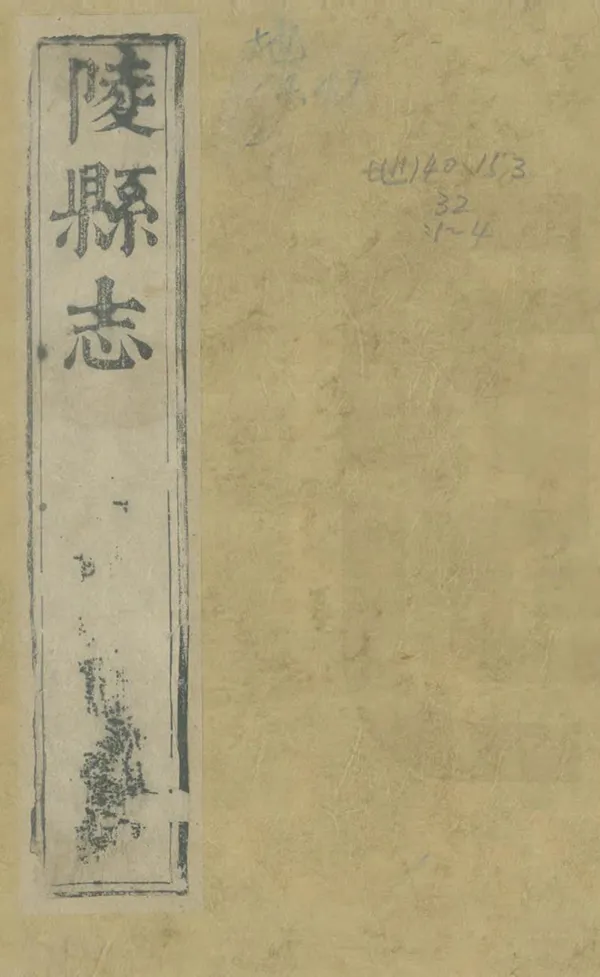 陵縣志
地140.153
32
:1~4